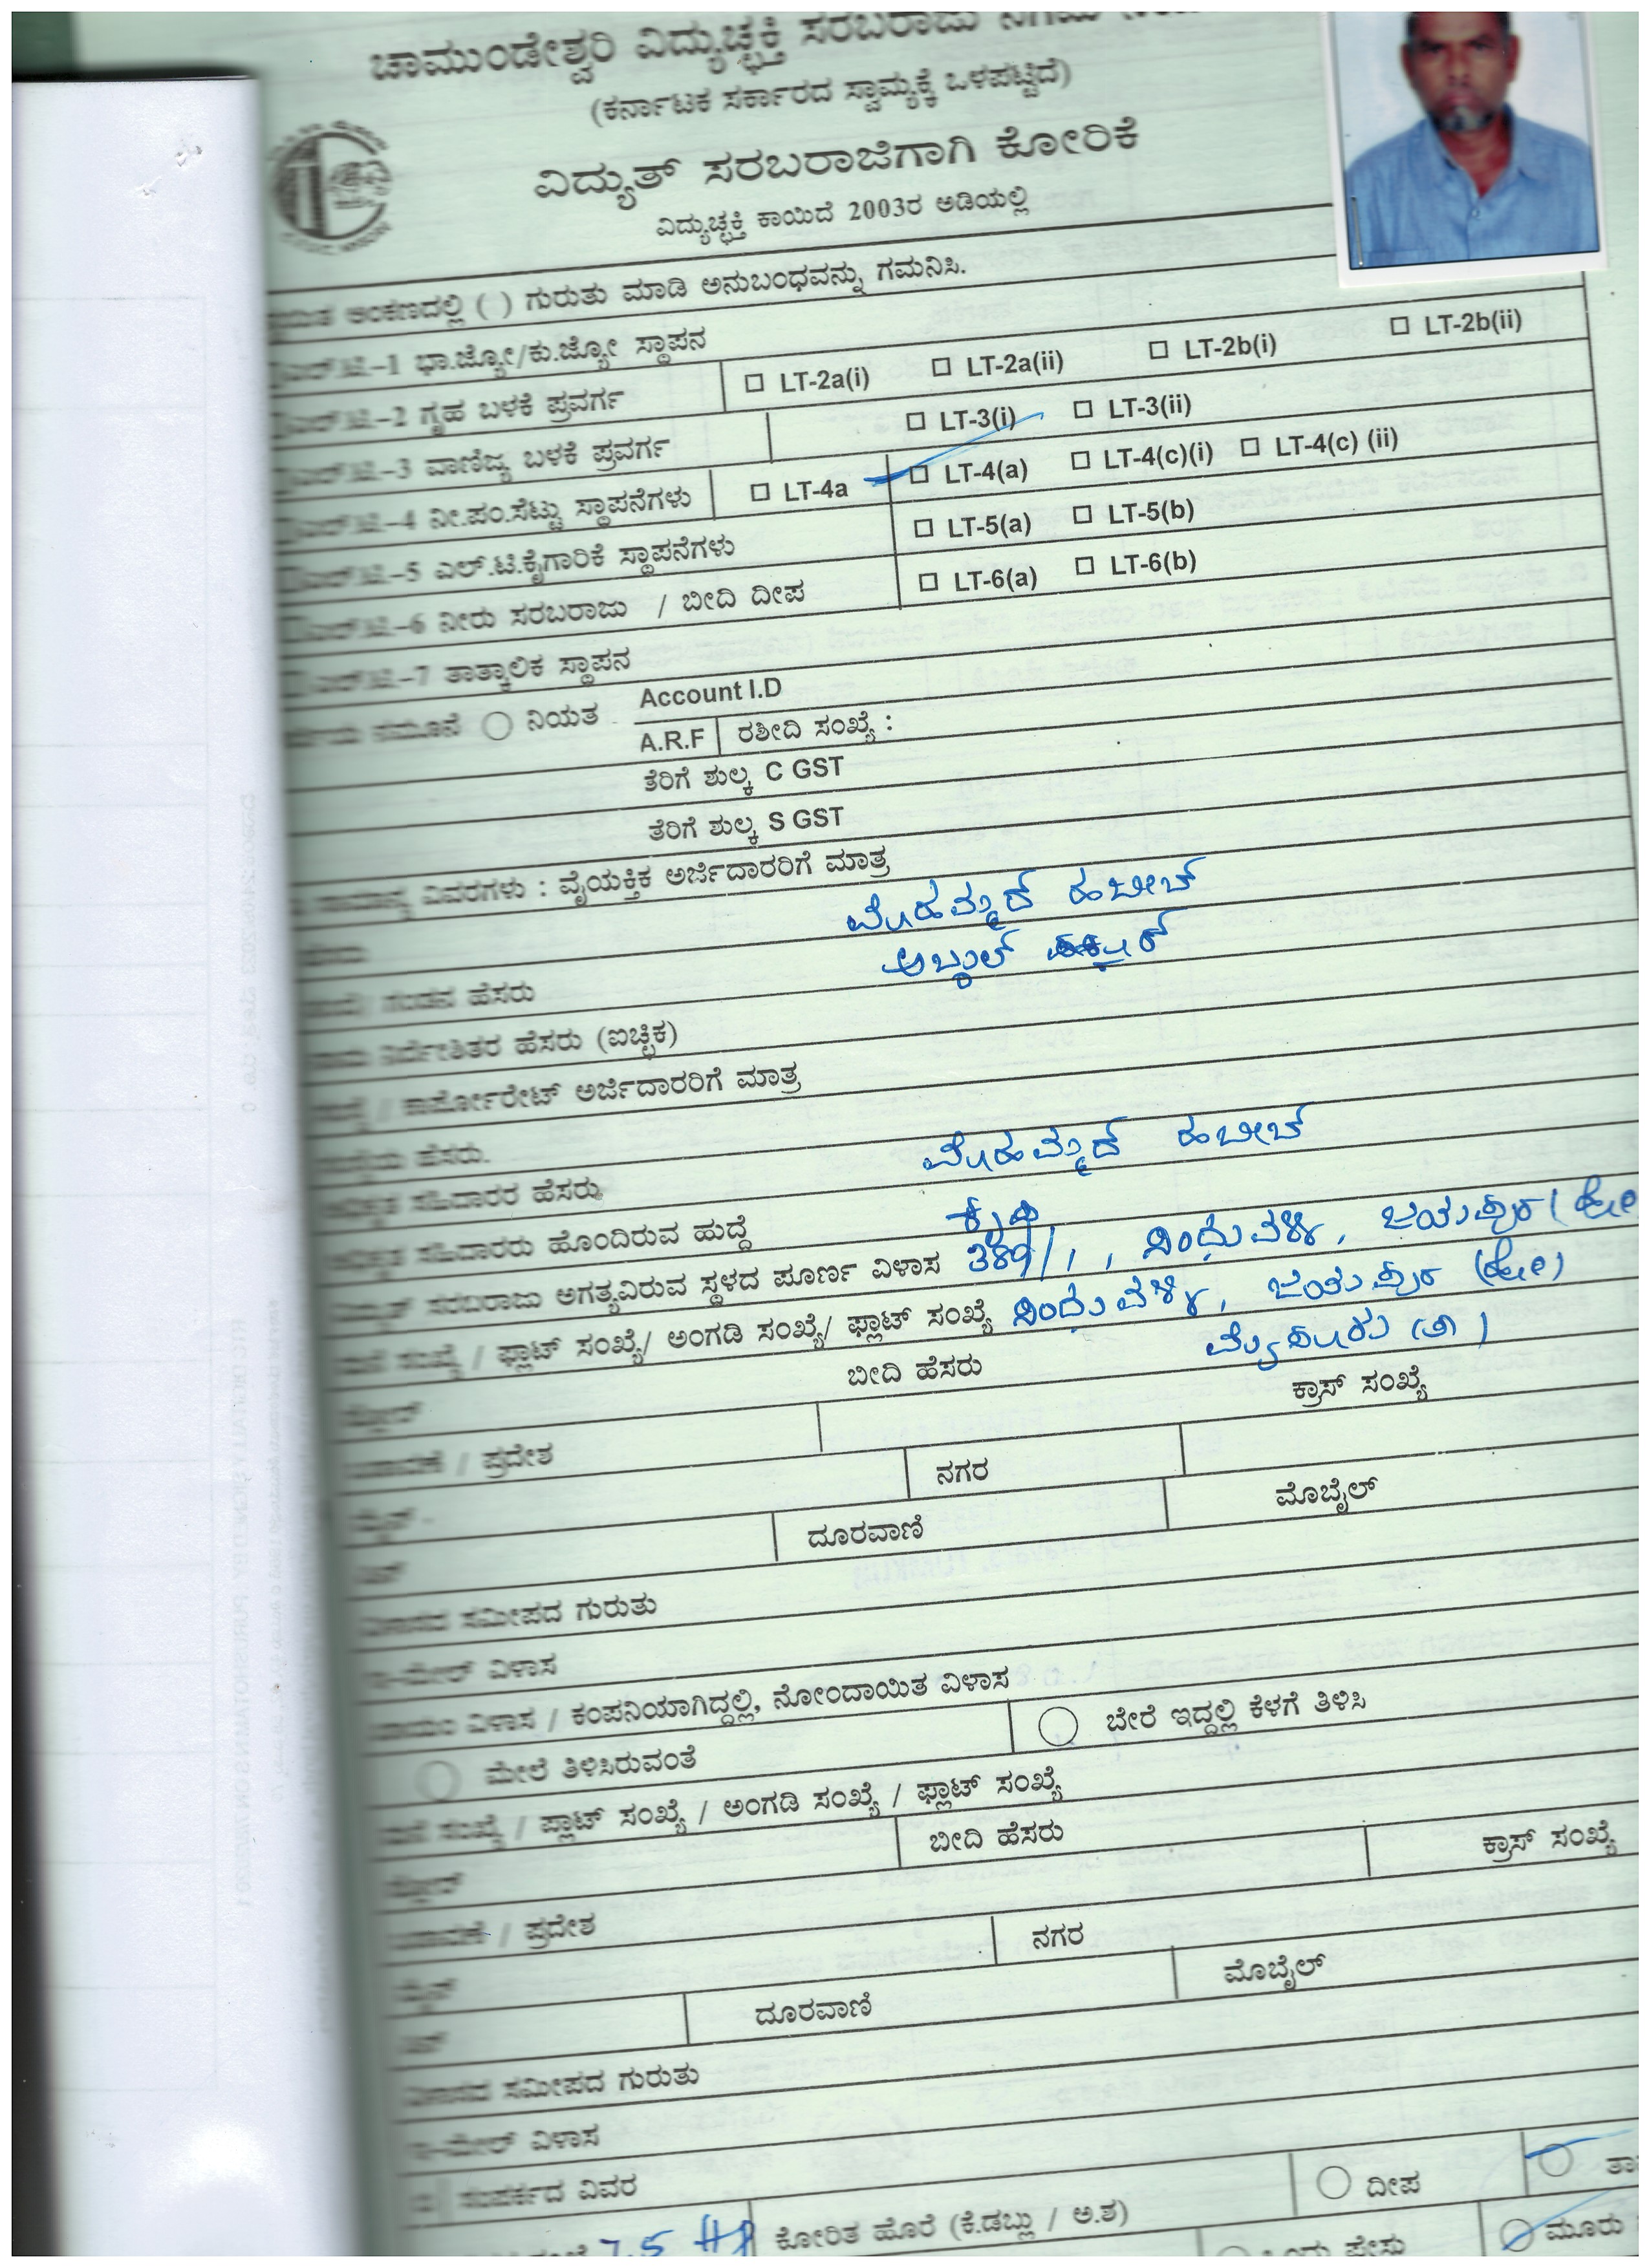 ಚಾಮುಂಡೇಶ್ವರಿ ವಿದ್ಯುಚ್ಛಕ್ತಿ ಸರಬರಾಜು ನಿಗಮ
(ಕರ್ನಾಟಕ ಸರ್ಕಾರದ ಸ್ವಾಮ್ಯಕ್ಕೆ ಒಳಪಟ್ಟಿದೆ)
ವಿದ್ಯುತ್ ಸರಬರಾಜಿಗಾಗಿ ಕೋರಿಕೆ
ವಿದ್ಯುಚ್ಛಕ್ತಿ ಕಾಯಿದೆ 2003ರ ಅಡಿಯಲ್ಲಿ
ಅಂಕಣದಲ್ಲಿ ( ) ಗುರುತು ಮಾಡಿ ಅನುಬಂಧವನ್ನು ಗಮನಿಸಿ.
ಎಲ್.ಟಿ.-1 ಭಾ.ಜ್ಯೋ/ಕು.ಜ್ಯೋ ಸ್ಥಾಪನ
ಎಲ್.ಟಿ.-2 ಗೃಹ ಬಳಕೆ ಪ್ರವರ್ಗ LT-2a(i) LT-2a(ii) LT-2b(i) LT-2b(ii)
ಎಲ್.ಟಿ.-3 ವಾಣಿಜ್ಯ ಬಳಕೆ ಪ್ರವರ್ಗ LT-3(i) LT-3(ii)
ಎಲ್.ಟಿ.-4 ನೀ.ಪಂ.ಸೆಟ್ಟು ಸ್ಥಾಪನೆಗಳು LT-4a LT-4(a) LT-4(c)(i) LT-4(c) (ii)
ಎಲ್.ಟಿ.-5 ಎಲ್.ಟಿ.ಕೈಗಾರಿಕೆ ಸ್ಥಾಪನೆಗಳು LT-5(a) LT-5(b)
ಎಲ್.ಟಿ.-6 ನೀರು ಸರಬರಾಜು / ಬೀದಿ ದೀಪ LT-6(a) LT-6(b)
ಎಲ್.ಟಿ.-7 ತಾತ್ಕಾಲಿಕ ಸ್ಥಾಪನ
ನಮೂನೆ ನಿಯತ Account I.D
A.R.F ರಶೀದಿ ಸಂಖ್ಯೆ :
ತೆರಿಗೆ ಶುಲ್ಕ C GST
ತೆರಿಗೆ ಶುಲ್ಕ S GST
ಸಾಮಾನ್ಯ ವಿವರಗಳು : ವೈಯಕ್ತಿಕ ಅರ್ಜಿದಾರರಿಗೆ ಮಾತ್ರ
ಮೊಹಮ್ಮದ್ ಹಬೀಬ್
ಗಂಡನ ಹೆಸರು ಅಬ್ದುಲ್
ನಾಮ ನಿರ್ದೇಶಿತರ ಹೆಸರು (ಐಚ್ಛಿಕ)
ಸಂಸ್ಥೆ / ಕಾರ್ಪೋರೇಟ್ ಅರ್ಜಿದಾರರಿಗೆ ಮಾತ್ರ
ಹೆಸರು.
ಅಧಿಕೃತ ಸಹಿದಾರರ ಹೆಸರು ಮೊಹಮ್ಮದ್ ಹಬೀಬ್
ಅಧಿಕೃತ ಸಹಿದಾರರು ಹೊಂದಿರುವ ಹುದ್ದೆ ಕೃಷಿ
ವಿದ್ಯುತ್ ಸರಬರಾಜು ಅಗತ್ಯವಿರುವ ಸ್ಥಳದ ಪೂರ್ಣ ವಿಳಾಸ 389/1, ಸಿಂಧುವಳ್ಳಿ, ಜಯಪುರ (ಹೋ
ಮನೆ ಸಂಖ್ಯೆ / ಫ್ಲಾಟ್ ಸಂಖ್ಯೆ/ ಅಂಗಡಿ ಸಂಖ್ಯೆ/ ಫ್ಲಾಟ್ ಸಂಖ್ಯೆ ಸಿಂಧುವಳ್ಳಿ, ಜಯಪುರ (ಹೋ)
ಬೀದಿ ಹೆಸರು ಮೈಸೂರು (ತಾ)
ಕ್ರಾಸ್ ಸಂಖ್ಯೆ
ಬಡಾವಣೆ / ಪ್ರದೇಶ
ನಗರ
ದೂರವಾಣಿ ಮೊಬೈಲ್
ವಿಳಾಸದ ಸಮೀಪದ ಗುರುತು
ಇ-ಮೇಲ್ ವಿಳಾಸ
ಖಾಯಂ ವಿಳಾಸ / ಕಂಪನಿಯಾಗಿದ್ದಲ್ಲಿ, ನೋಂದಾಯಿತ ವಿಳಾಸ
ಮೇಲೆ ತಿಳಿಸಿರುವಂತೆ ಬೇರೆ ಇದ್ದಲ್ಲಿ ಕೆಳಗೆ ತಿಳಿಸಿ
ಮನೆ ಸಂಖ್ಯೆ / ಪ್ಲಾಟ್ ಸಂಖ್ಯೆ / ಅಂಗಡಿ ಸಂಖ್ಯೆ / ಫ್ಲಾಟ್ ಸಂಖ್ಯೆ
ಬೀದಿ ಹೆಸರು ಕ್ರಾಸ್ ಸಂಖ್ಯೆ
ಬಡಾವಣೆ / ಪ್ರದೇಶ
ನಗರ
ದೂರವಾಣಿ ಮೊಬೈಲ್
ವಿಳಾಸದ ಸಮೀಪದ ಗುರುತು
ಇ-ಮೇಲ್ ವಿಳಾಸ
ಸಂಪರ್ಕದ ವಿವರ ದೀಪ
7.5 HP ಕೋರಿತ ಹೊರೆ (ಕೆ.ಡಬ್ಲ್ಯು / ಅ.ಶ) ಮೂರು